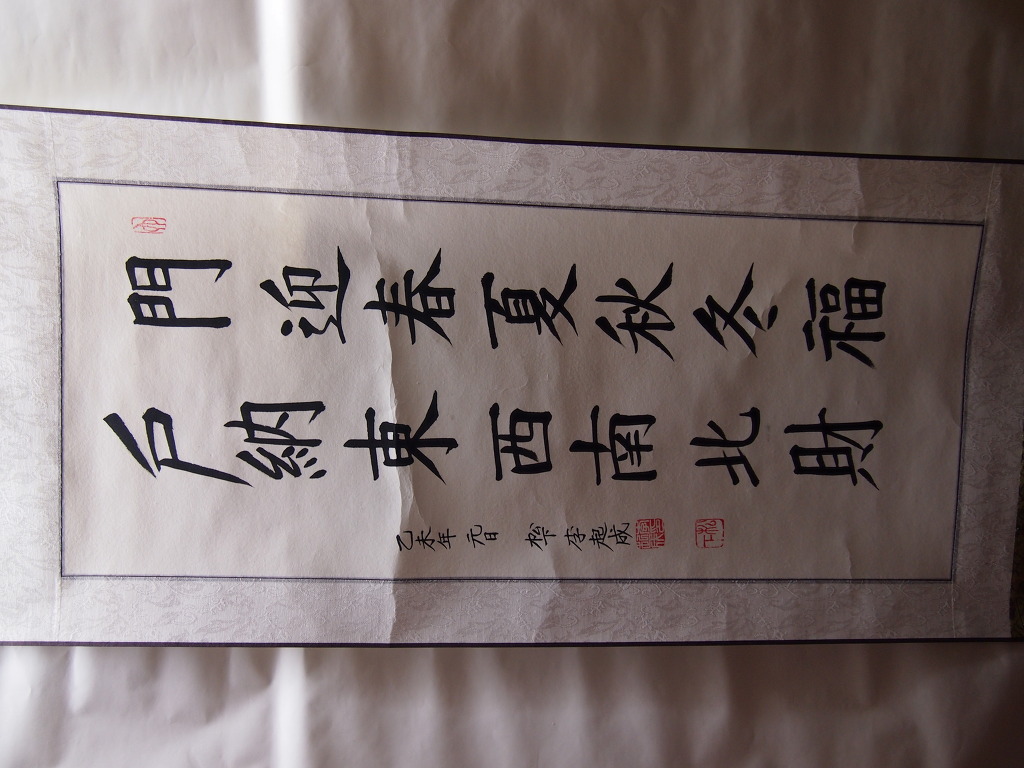 門迎春夏秋冬福
戶納東西南北財
乙未年 元日 李起成